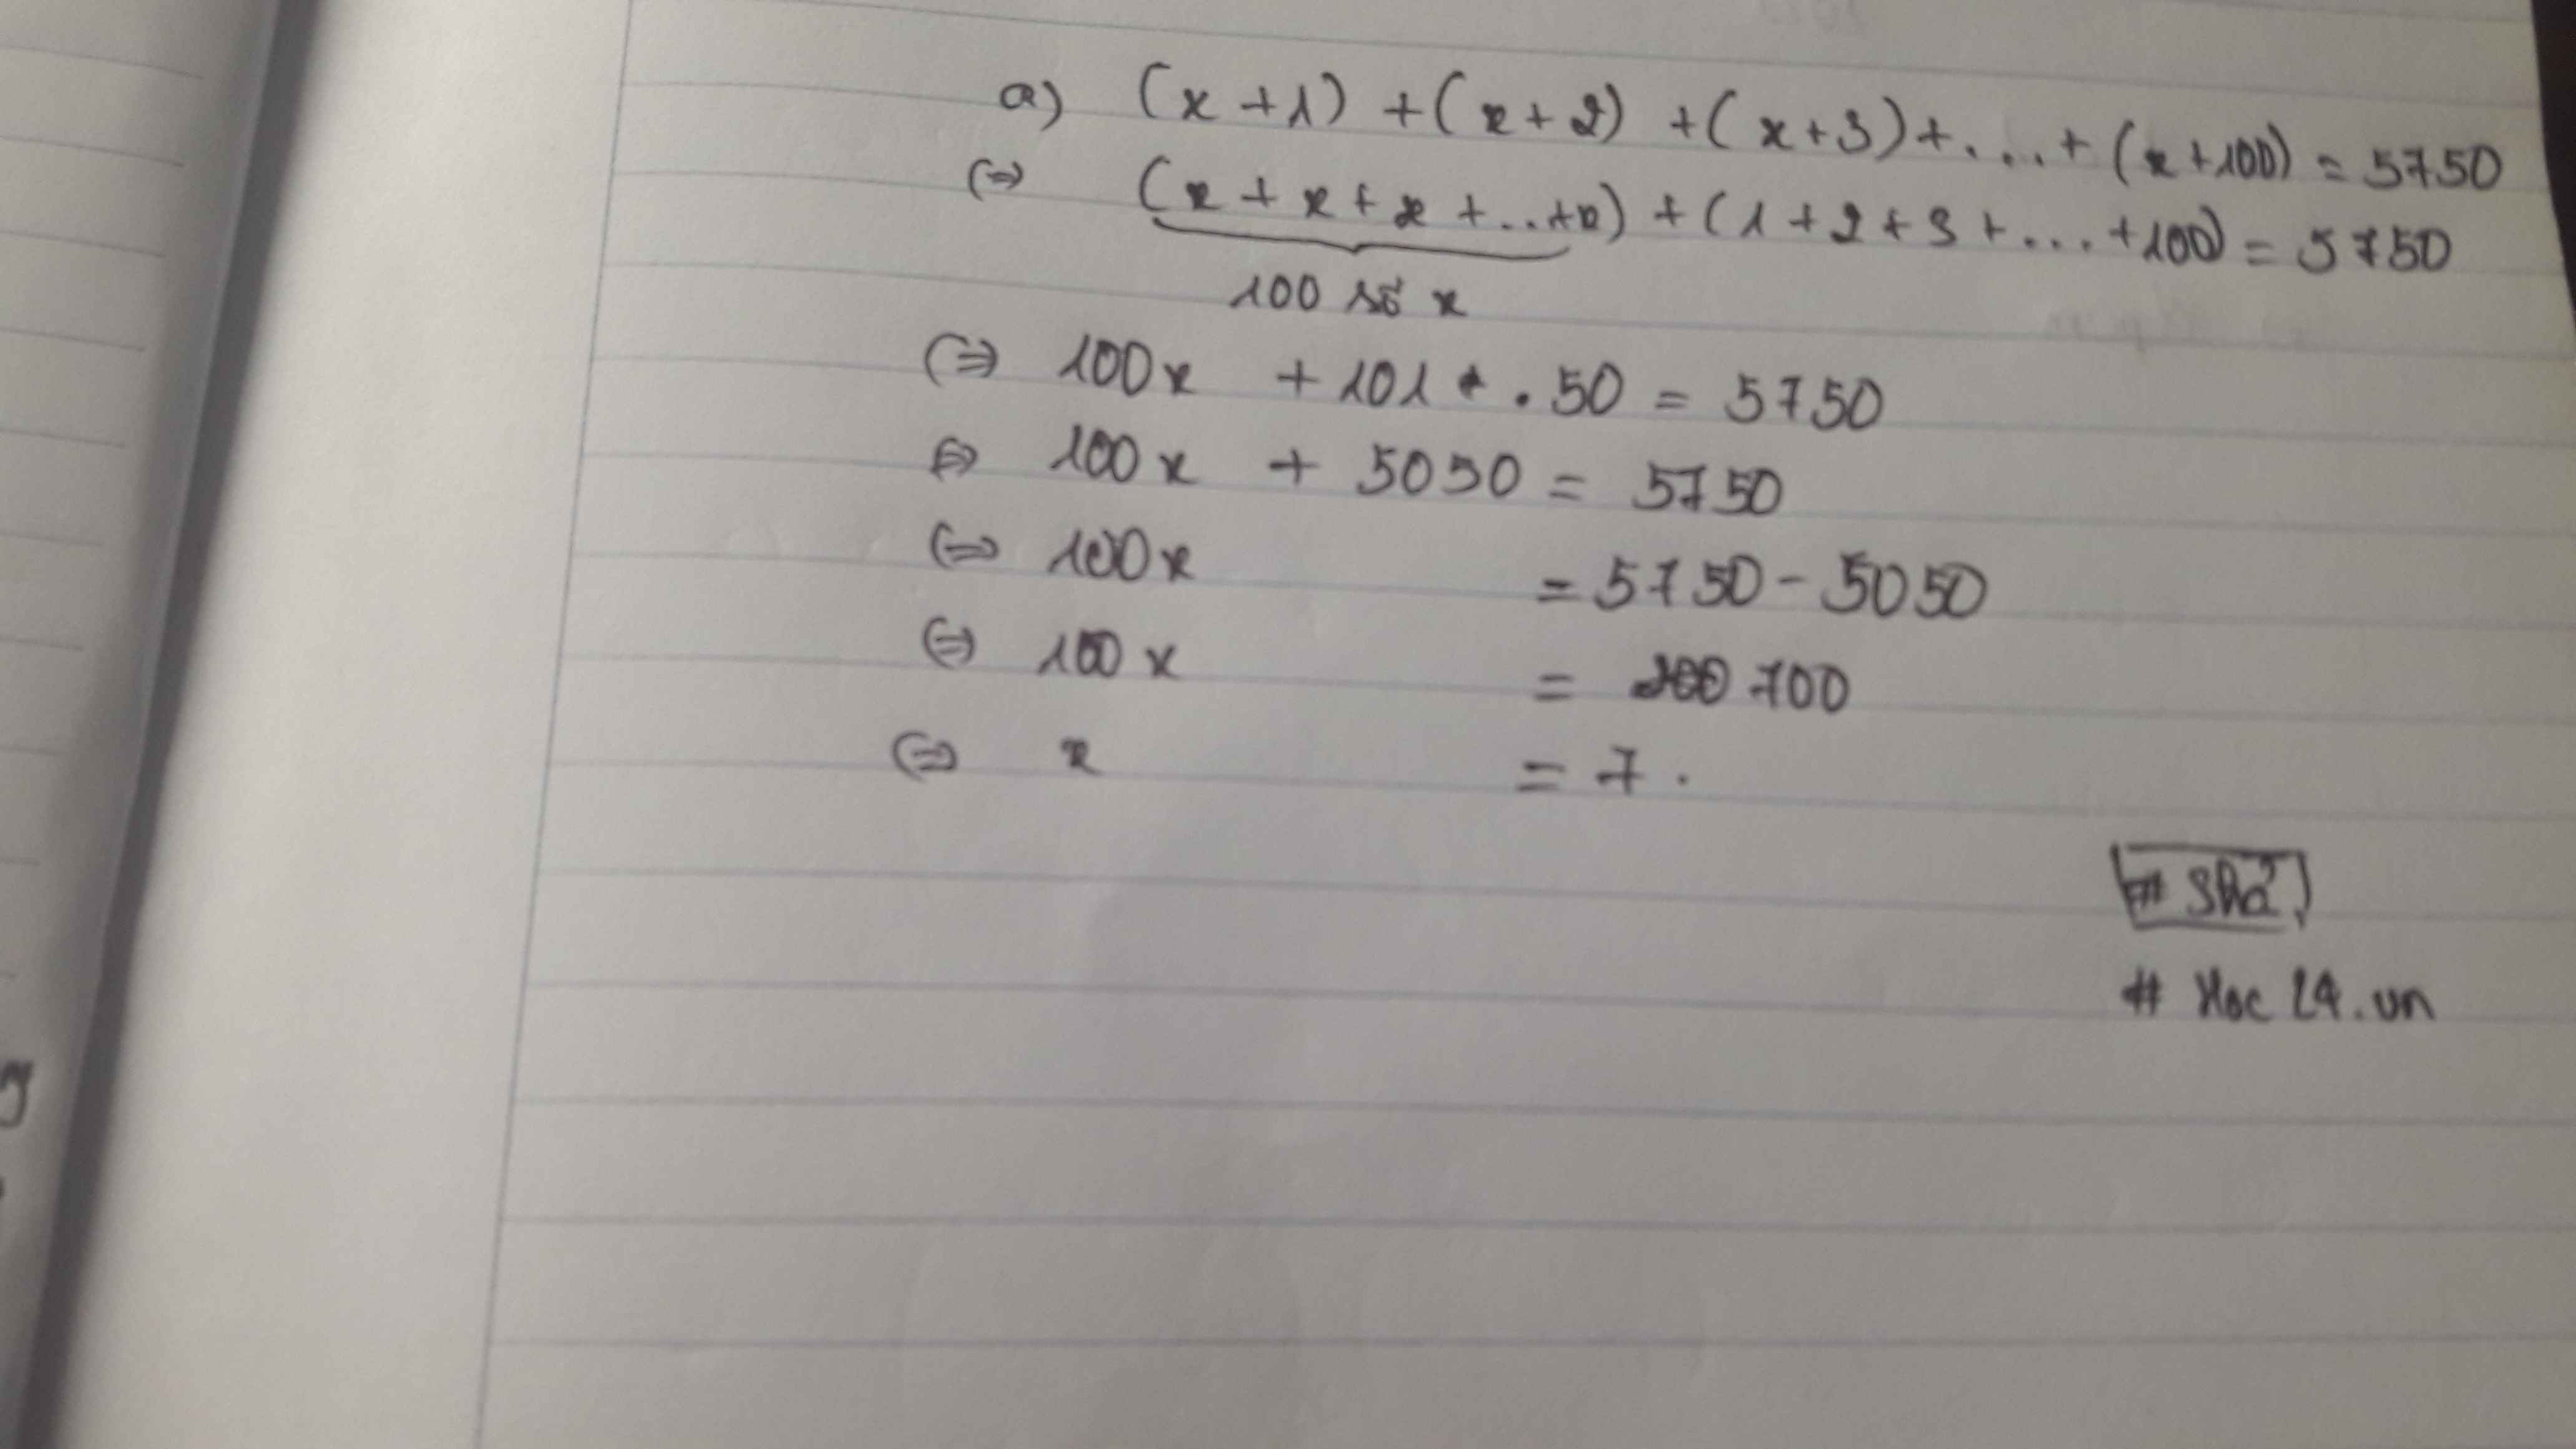 a) (x+1) + (x+2) + (x+3) + ... + (x+100) = 5750
(=) (x + x + x + ... + x) + (1 + 2 + 3 + ... + 100) = 5750
100 số x
(=) 100x + 101 . 50 = 5750
(=) 100x + 5050 = 5750
(=) 100x = 5750 - 5050
(=) 100x = 700
(=) x = 7.
# Hoc 24.vn